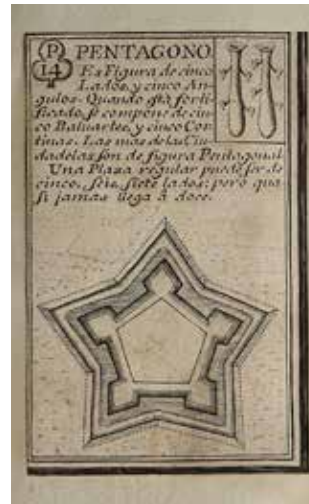 P
14
PENTAGONO.
Es Figura de cinco
Lados, y cinco An-
gulos. Quando está forti-
ficado, se compone de cin-
co Baluartes, y cinco Cor-
tinas. Las mas de las Ciu-
dadelas son de figura Pentagonal.
Una Plaza regular puede ser de
cinco, seis, siete lados; pero qua-
si jamas llega a doce.